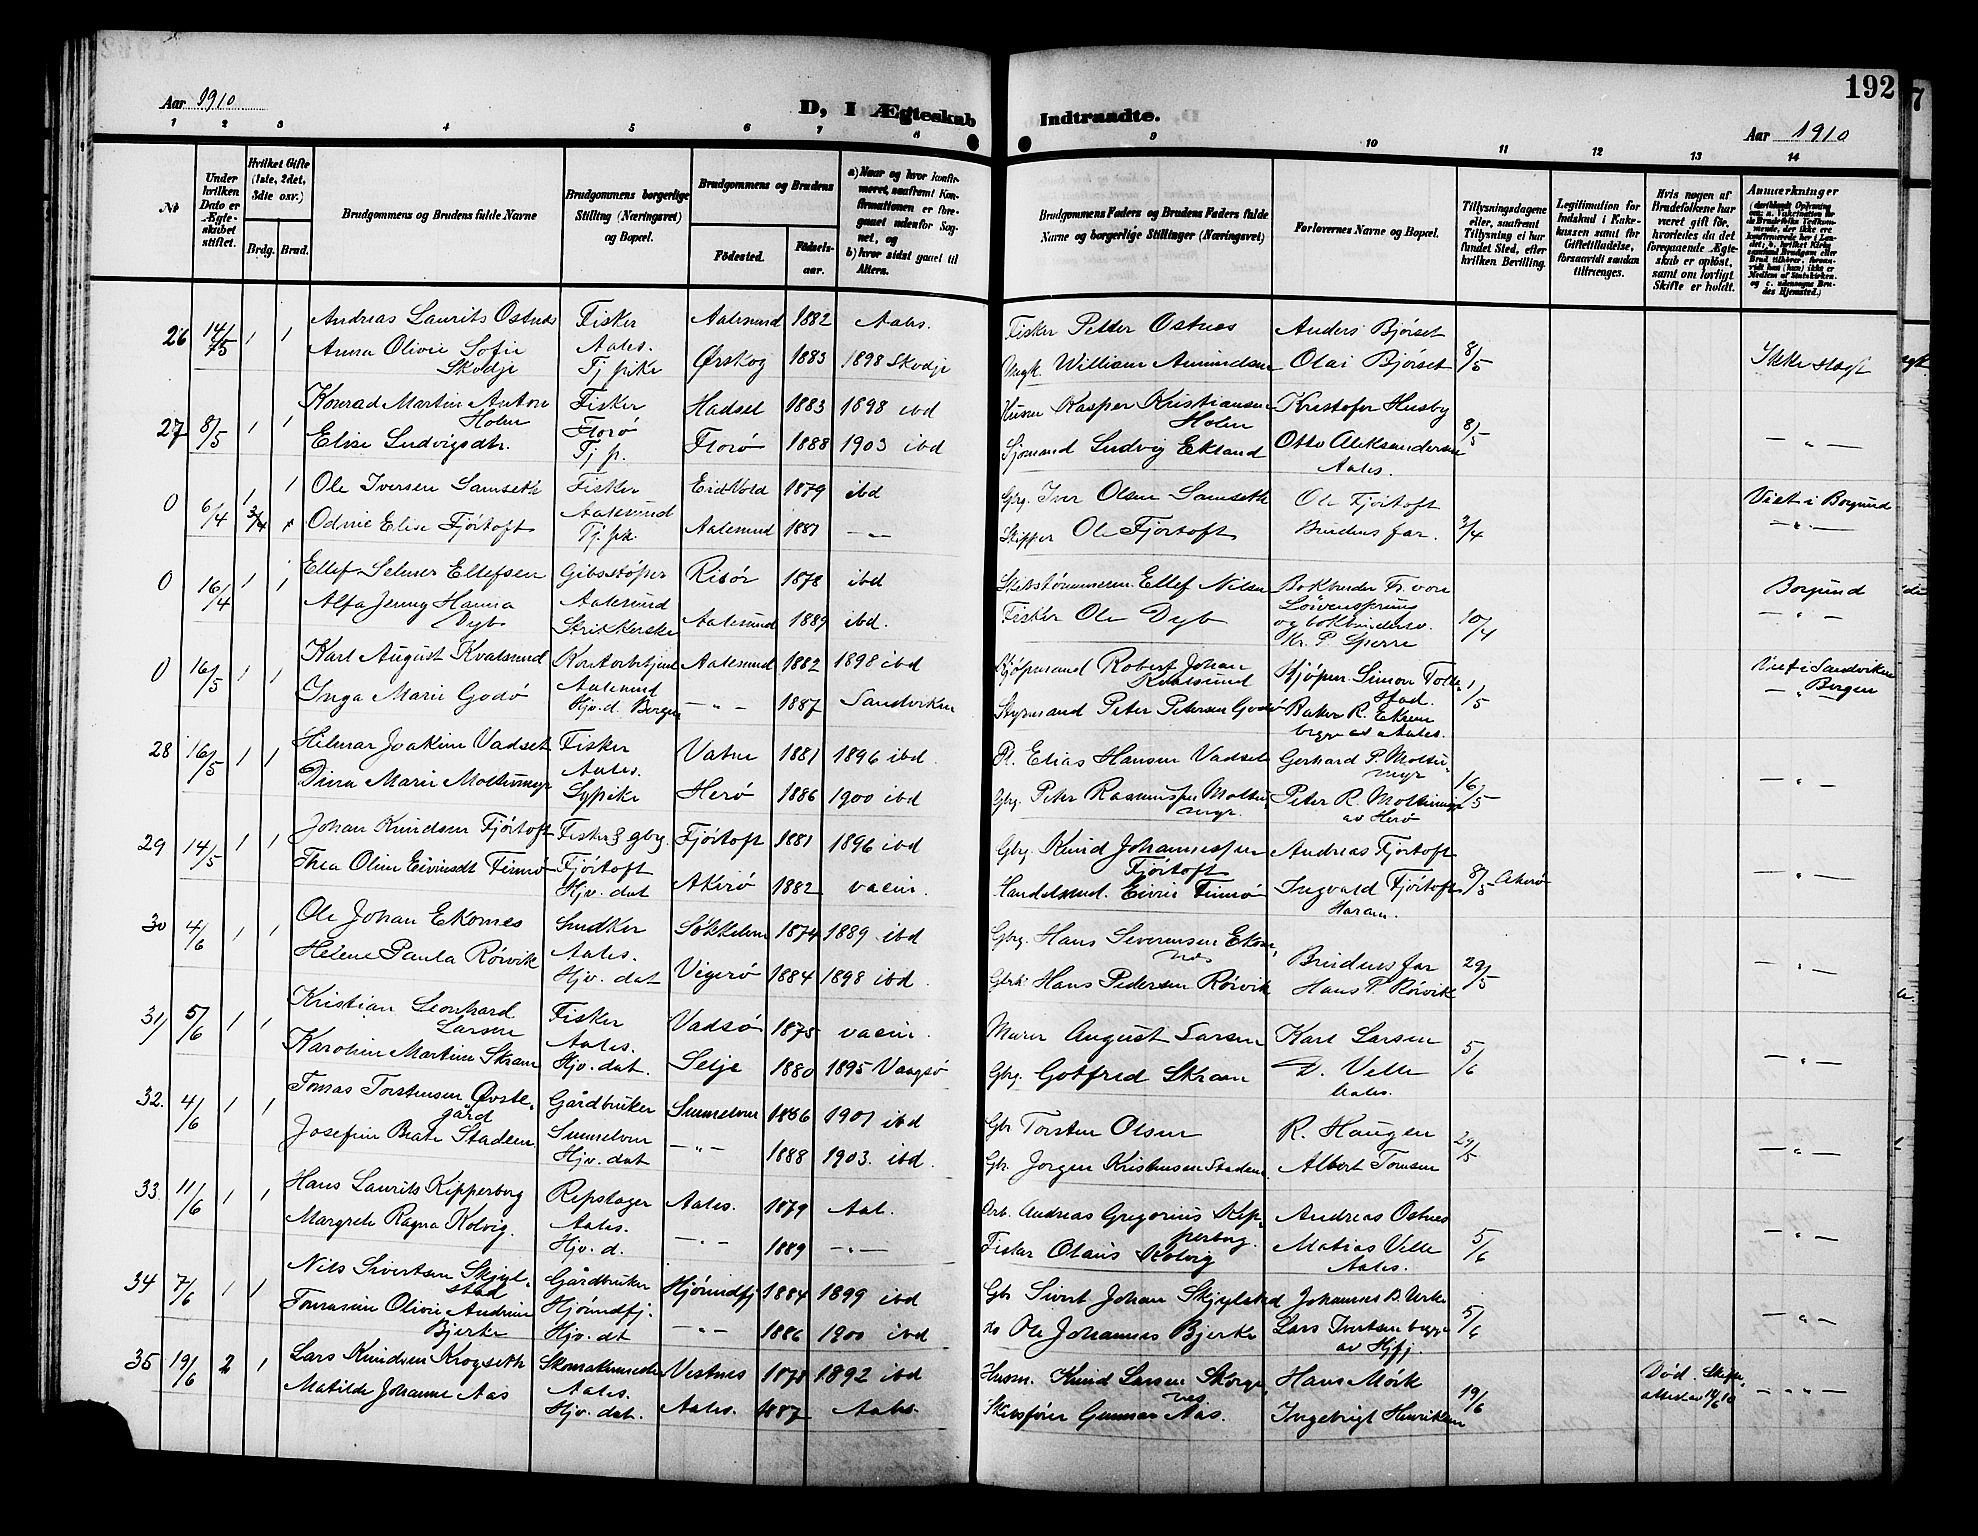 192
Aar 1910
D, I Ægteskab Indtraadte.
Aar 1910
1 2 3 4 5 6 7 8 9 10 11 12 13 14
No
Under hvilken Dato er Ægteskabet stiftet.
Hvilket Gifte (1ste, 2det, 3die osv.)
Brdg. Brud.
Brudgommens og Brudens fulde Navne
Brudgommens borgerlige Stilling (Næringsvei) og Bopæl.
Brudgommens og Brudens
Fødested. Fødselsaar.
a) Naar og hvor konfirmeret, saafremt Konfirmationen er foregaaet udenfor Sognet, og
b) hvor sidst gaaet til Alters.
Brudgommens Faders og Brudens Faders fulde Navne og borgerlige Stillinger (Næringsvei)
Forlovernes Navne og Bopæl.
Tillysningsdagene eller, saafremt Tillysning ei har fundet Sted, efter hvilken Bevilling.
Legitimation for Indskud i Enkekassen samt for Giftetilladelse, forsaavidt saadan tiltrænges.
Hvis nogen af Brudefolkene har været gift før, hvorledes da det foregaaende Ægteskab er opløst, samt om lovligt Skifte er holdt.
Anmærkninger
26 14/5 1 1 Andreas Laurits Ostnes Fisker Aalesund 1882 Aales. Fisker Petter Ostnes Anders Bjørset 8/5 Ikke slegt
Anna Olivie Sofie Skodje Aales. Tj. pike Ørskog 1883 1898 Skodje William Amundsen Olai Bjørset
27 8/5 1 1 Konrad Martin Anton Holm Fisker Florø Hadsel 1883 1898 ibd Kasper Kristiansen Holm Kristofer Husby 8/5 — " —
Elise Ludvigsdtr. Tj. p. Florø 1888 1903 ibd Sjømand Ludvig Ekland Otto Aleksandersen Aales.
0 6/4 1 1 Ole Iversen Samseth Fisker Aalesund Eidsvold 1879 ibd Gbrg. Iver Olsen Samseth Ole Fjørtoft Viet i Borgund
3/4 Odine Elise Fjørtoft Tj. pk. Aalesund 1881 — " — Skipper Ole Fjørtoft Brudens far. 3/4 — " —
0 16/4 1 1 Ellef Selmer Ellefsen Gibsstøper Aalesund Risør 1878 ibd Skibstømmermn. Ellef Nilsen Bokbinder Fr. von Løwensprung Borgund
Alfa Jenny Hanna Dyb Strikkerske Aalesund 1889 ibd. Fisker Ole Dyb og bokbindersv. Kr. P. Sperre 10/4 — " —
0 16/5 1 1 Karl August Kvalsund Kontorbetjent Aalesund Aalesund 1882 1898 ibd Kjøpmand Robert Johan Kvalsund Kjøpm. Simon Tollestad. 1/5 Viet i Sandviken
Inga Marie Godø Hjv. d. Bergen — " — 1887 Sandviken Styrmand Peter Petersen Godø Baker R. Eknem begge av Aales. — " Bergen
28 16/5 1 1 Hilmar Joakim Vadset Fisker Aales. Vatne 1881 1896 ibd. Pl. Elias Hansen Vadset Gerhard P. Moltumyr 16/5 — " —
Dina Marie Moltumyr Sypike Herø 1886 1900 ibd Gbrg. Peter Rasmussen Moltumyr. Peter R. Moltumyr av Herø
29 14/5 1 1 Johan Knudsen Fjørtoft Fisker & gbrg. Fjørtoft Fjørtoft 1881 1896 ibd Gbrg. Knud Johannessen Fjørtoft Andreas Fjørtoft 8/5 Akerø — " —
Thea Oline Eivindsdt Finnø Hjv. dat Akerø 1882 vaccin. Handelsmd. Eivin Finnø Ingvald Fjørtoft Haram.
30 4/6 1 1 Ole Johan Ekornes Snedker Aales. Søkkelven 1874 1889 ibd Gbrg. Hans Severinsen Ekornnes Brudens far 29/5 — " —
Helene Paula Rørvik Hjv. dat Vigerø 1884 1898 ibd. Hans Pedersen Rørvik Hans P. Rørvik
31 5/6 1 1 Kristian Leonhard Larsen Fisker Aales. Vadsø 1875 vaccin. Murer August Larsen Karl Larsen 5/6 — " —
Karoline Martine Skram Hjv. dat. Selje 1880 1895 Vaagsø Gbrg. Gotfred Skram D. Velle Aales.
32. 4/6 1 1 Tomas Torstensen Øvstegård Gårdbruker Sunnelven Sunnelven 1886 1901 ibd Gbr Torsten Olsen R. Haugen 29/5 — " —
Josefine Beate Stadem Hjv. dat — " — 1888 1903. ibd. Gbr. Jørgen Kristensen Stadem Albert Tomsen
33. 11/6 1 1 Hans Laurits Kipperberg Repslager Aales. Aales. 1879 Aal. Arb. Andreas Gregorius Kipperberg Andreas Ostnes 5/6 — " —
Margrete Ragna Kolvig. Hjv. d. — " — 1889 — " — Fisker Olaus Kolvig Matias Velle Aales.
34 7/6 1 1 Nils Sivertsen Skjylstad Gårdbruker Hjørundfj. Hjørundfj 1884 1899 ibd Gbr Sivert Johan Skjylstad Johannes B. Urke 5/6 — " —
Olivie Andrine Bjerke Hjv. dt — " — 1886 1900 ibd Ole Johannes Bjerke Lars Ivertsen begge av Hjfj.
35 19/6 2 1 Lars Knudsen Krogseth Aales. Vestnes 1878 1892 ibd Husm. Knud Larsen Hans Mørk 19/6 Død. Skifteattest av 14/6 10 — " —
Matilde Johanne Aas Hjv. dat. Aales. 1887 Aales. Skibsfører Gunnar Aas. Ingebrigt Henriksen